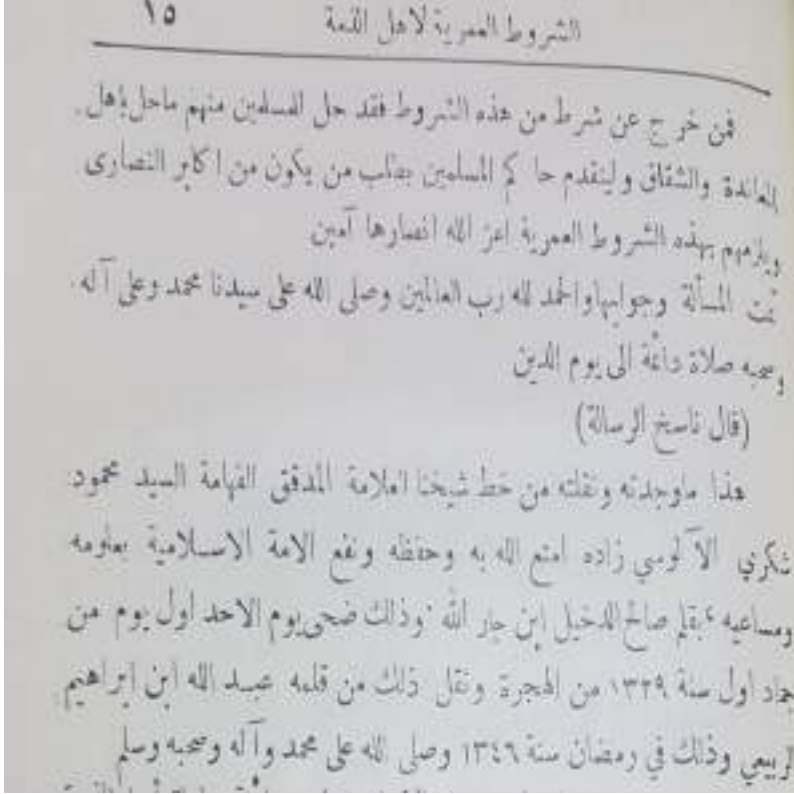 الشروط العمرية لاهل الذمة ١٥
فمن خرج عن شرط من هذه الشروط فقد حل للمسلمين منهم ماحل باهل
المعاندة والشقاق وليتقدم حاكم المسلمين بطلب من يكون من اكابر النصارى
ويلزمهم بهذه الشروط العمرية اعز الله انصارها آمين
تمت المسألة وجوابها والحمد لله رب العالمين وصلى الله على سيدنا محمد وعلى آله
وصحبه صلاة دائمة الى يوم الدين
(قال ناسخ الرسالة)
هذا ماوجدته ونقلته من خط شيخنا العلامة المدقق الفهامة السيد محمود
شكري الآلوسي زاده امتع الله به وحفظه ونفع الامة الاسلامية بعلومه
ومساعيه، بقلم صالح الدخيل ابن جار الله وذلك ضحى يوم الاحد اول يوم من
جماد اول سنة ١٣٢٩ من الهجرة ونقل ذلك من قلمه عبد الله ابن ابراهيم
الربيعي وذلك في رمضان سنة ١٣٤٦ وصلى الله على محمد وآله وصحبه وسلم